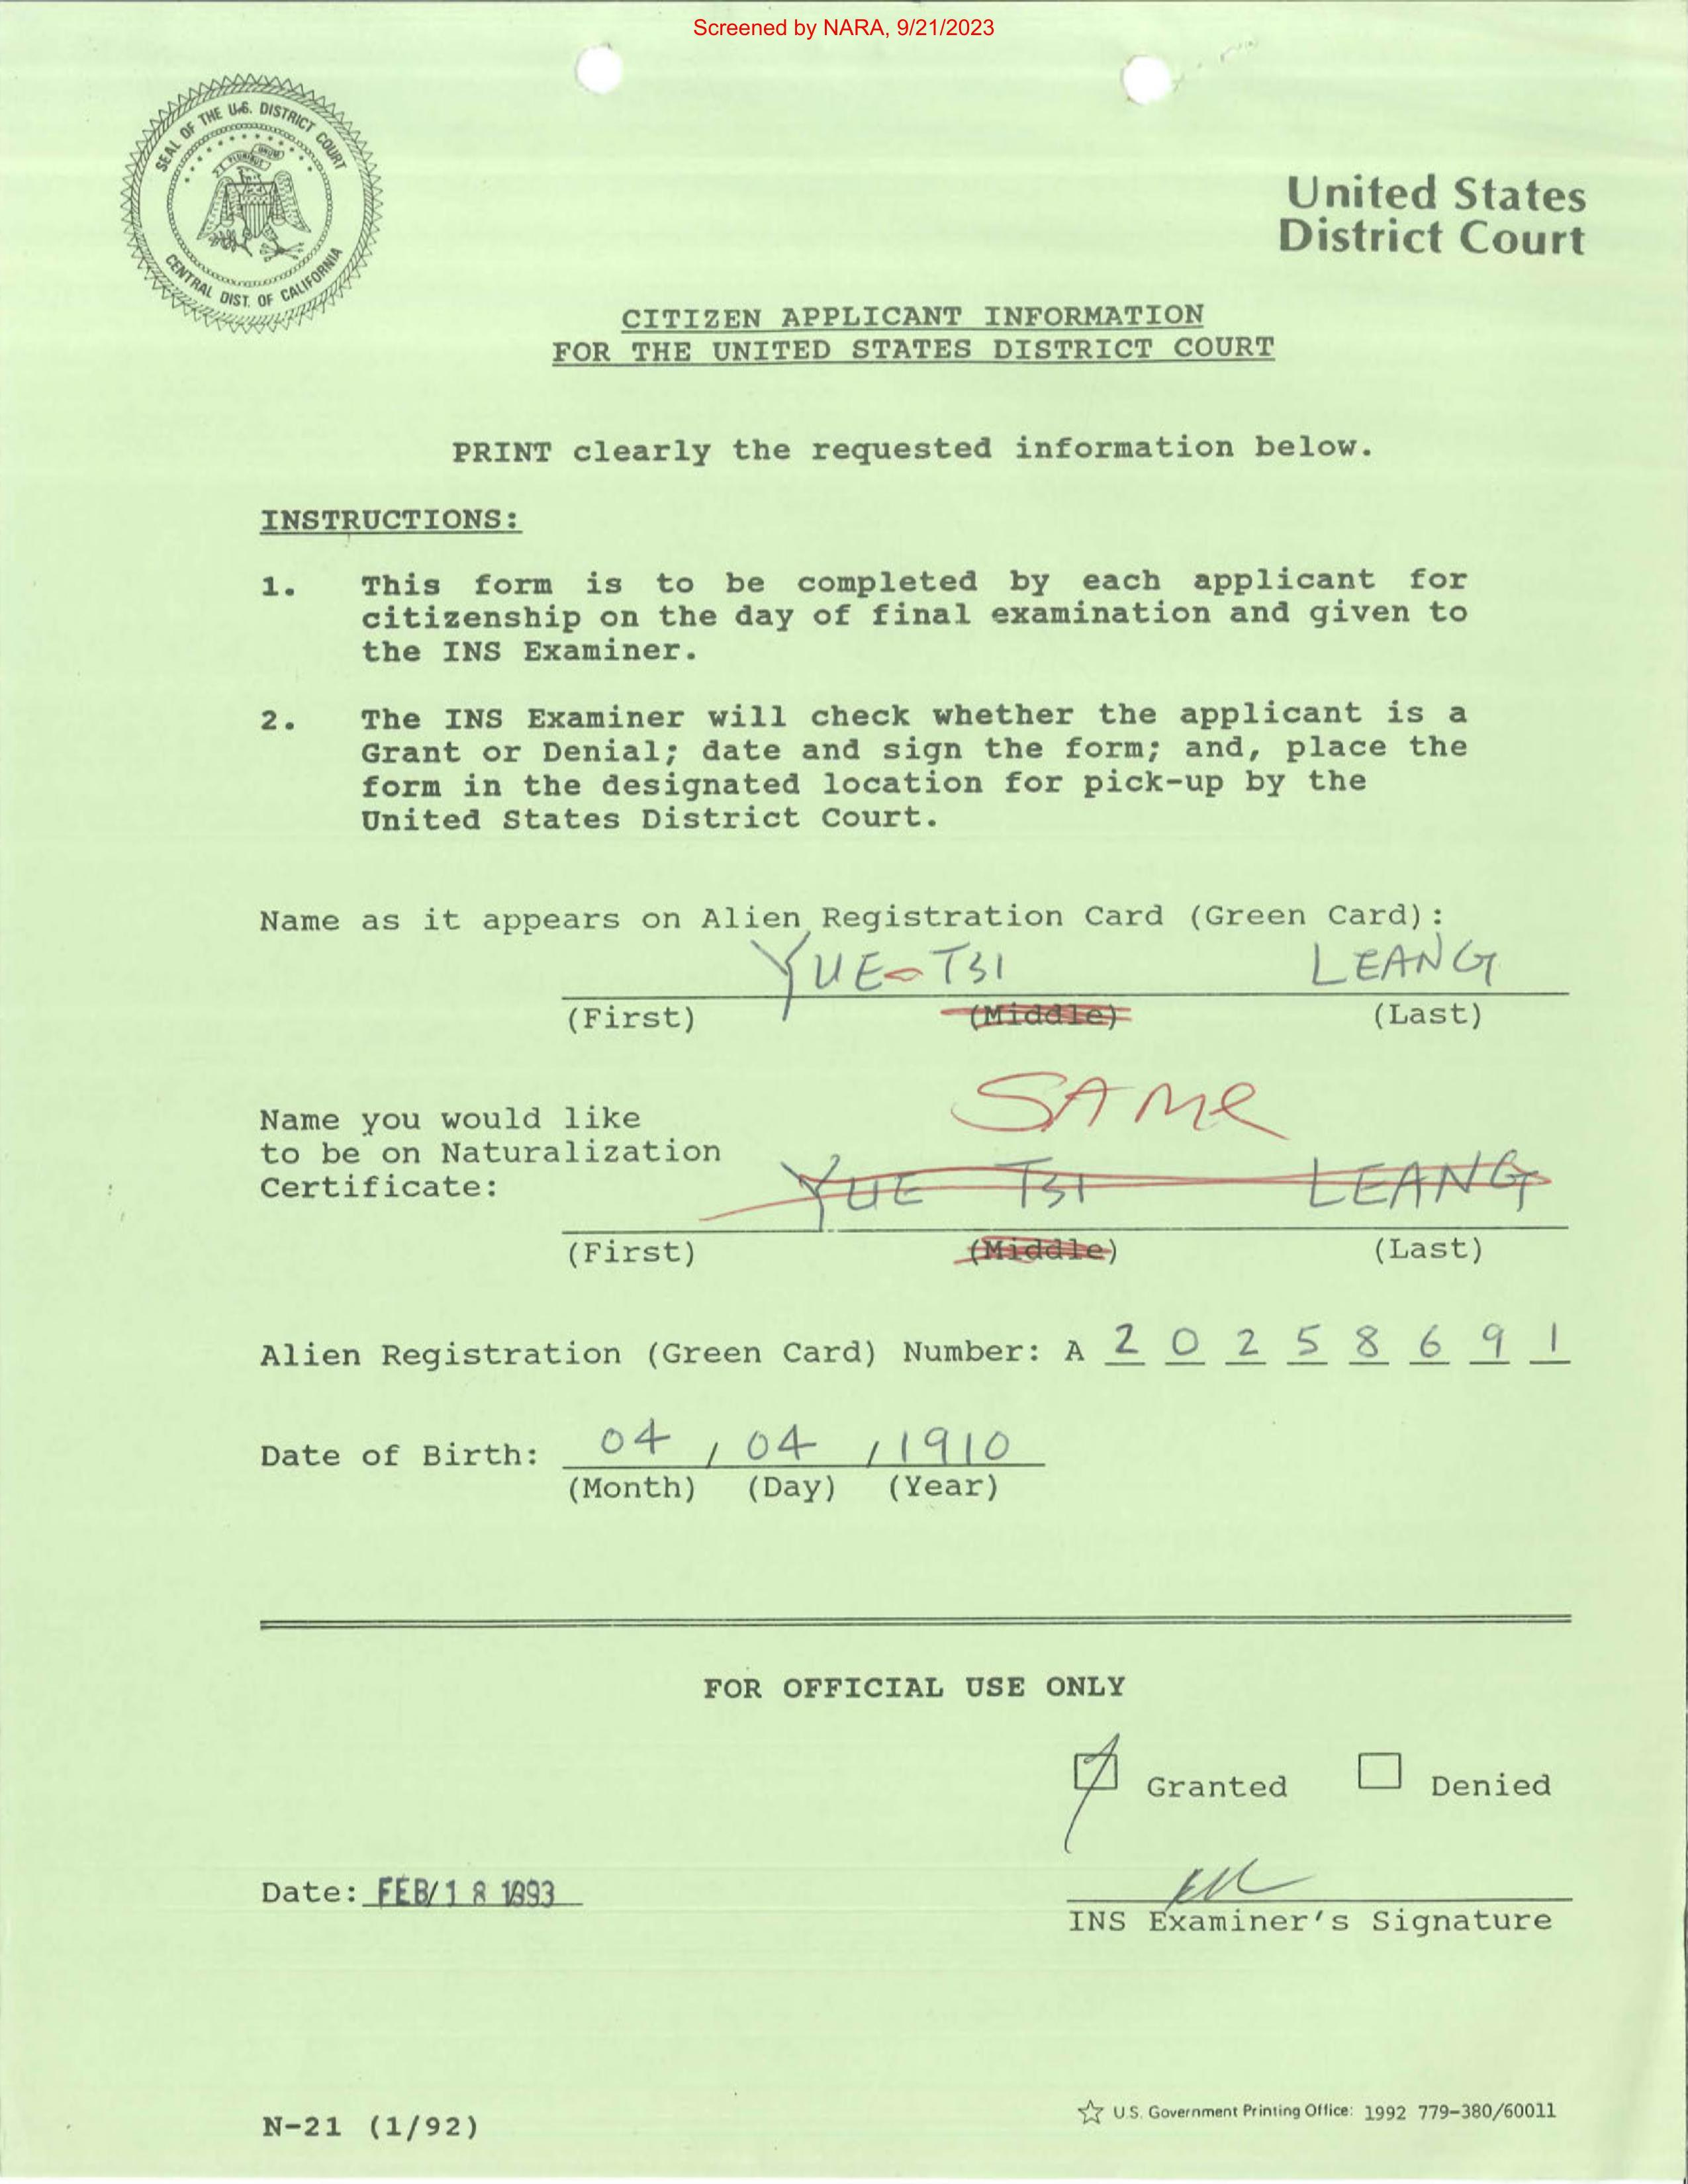 Screened by NARA, 9/21/2023
SEAL OF THE U.S. DISTRICT COURT
E PLURIBUS UNUM
CENTRAL DIST. OF CALIFORNIA
United States
District Court
CITIZEN APPLICANT INFORMATION
FOR THE UNITED STATES DISTRICT COURT
PRINT clearly the requested information below.
INSTRUCTIONS:
1. This form is to be completed by each applicant for
citizenship on the day of final examination and given to
the INS Examiner.
2. The INS Examiner will check whether the applicant is a
Grant or Denial; date and sign the form; and, place the
form in the designated location for pick-up by the
United States District Court.
Name as it appears on Alien Registration Card (Green Card):
YUE-TSI LEANG
(First) (Middle) (Last)
SAME
Name you would like
to be on Naturalization
Certificate: YUE TSI LEANG
(First) (Middle) (Last)
Alien Registration (Green Card) Number: A 2 0 2 5 8 6 9 1
Date of Birth: 04 / 04 / 1910
(Month) (Day) (Year)
FOR OFFICIAL USE ONLY
Granted Denied
Date: FEB/18 1993
INS Examiner's Signature
N-21 (1/92)
U.S. Government Printing Office: 1992 779-380/60011